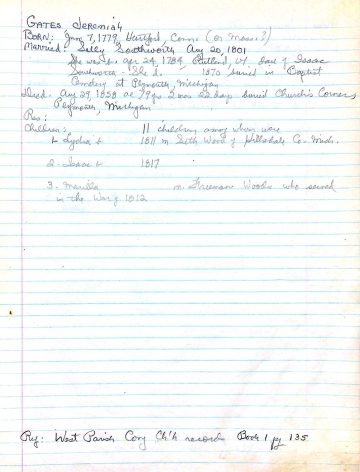 GATES Jeremiah
BORN: Jan 7, 1779 Hartford, Conn (or Mass?)
Married: Sally Southworth Aug 20, 1801
She was b. apr 24, 1784 Rutland, Vt. dau of Isaac
Southworth - She d. 1870 buried in Baptist
Cemetery at Plymouth, Michigan
Died. Aug 29, 1858 ae 79 yrs 7 mos 22 days buried Church's Corners,
Plymouth, Michigan
Res:
Children: 11 children among whom were
1. Lydia b 1811 m Seth Wood of Hillsdale Co. Mich.
2 - Isaac b 1817
3. Marilla m. Freeman Wood who served
in the War of 1812
Ref: West Parish Cong Ch'h records Book 1 pg 135